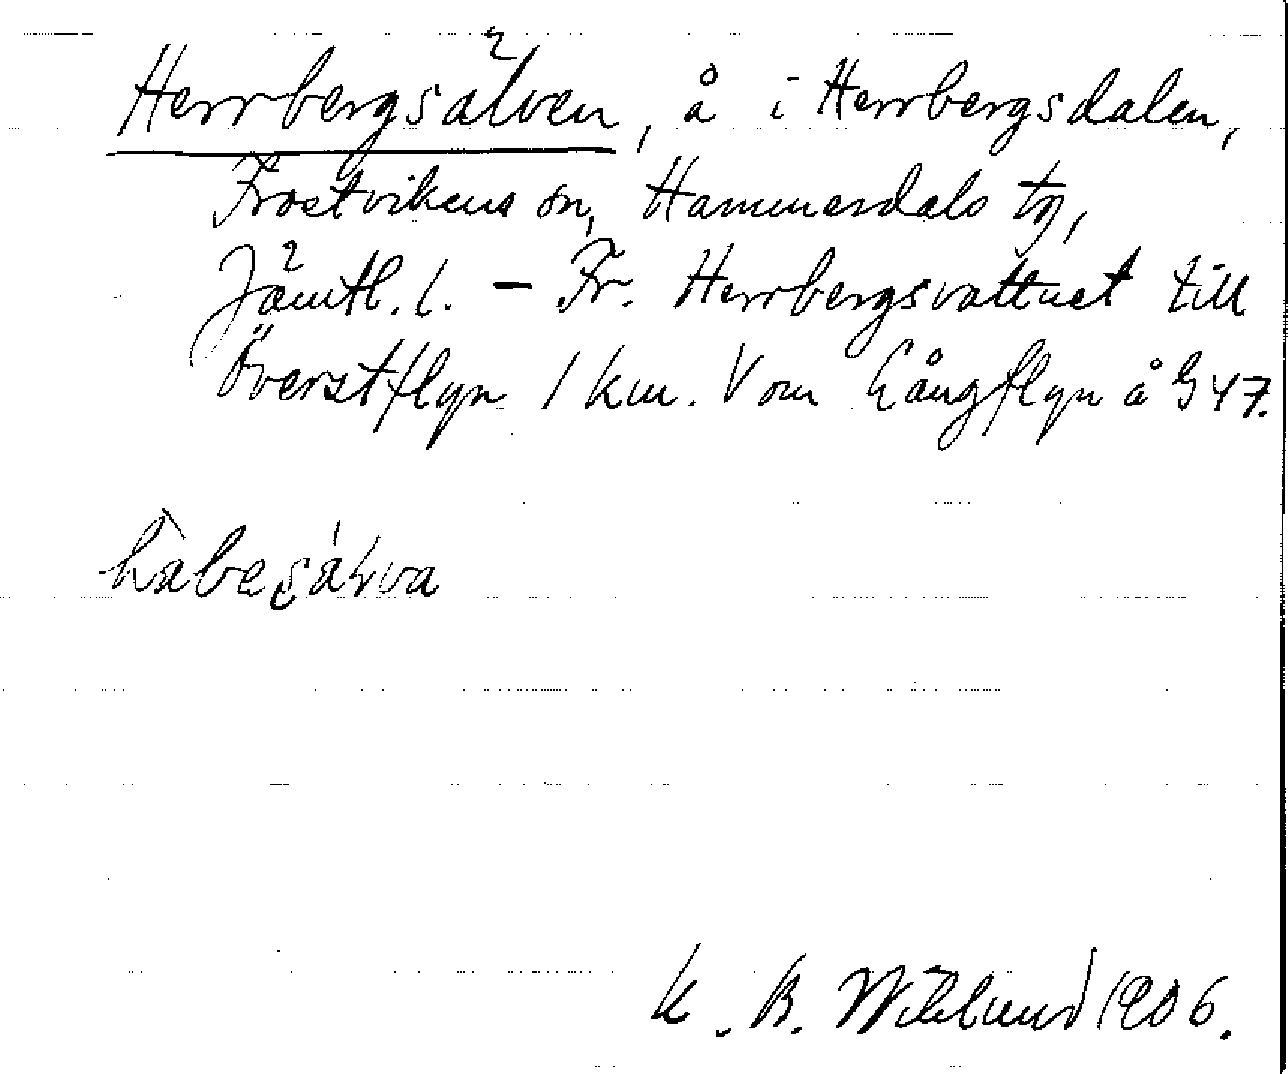 Herrbergsälven, å i Herrbergsdalen,
Frostvikens sn, Hammerdals tg,
Jämtl. l. – Fr. Herrbergsvattnet till
Överstflyn 1 km. V om Långflyn å G 47.
K. B. Wiklund 1906.